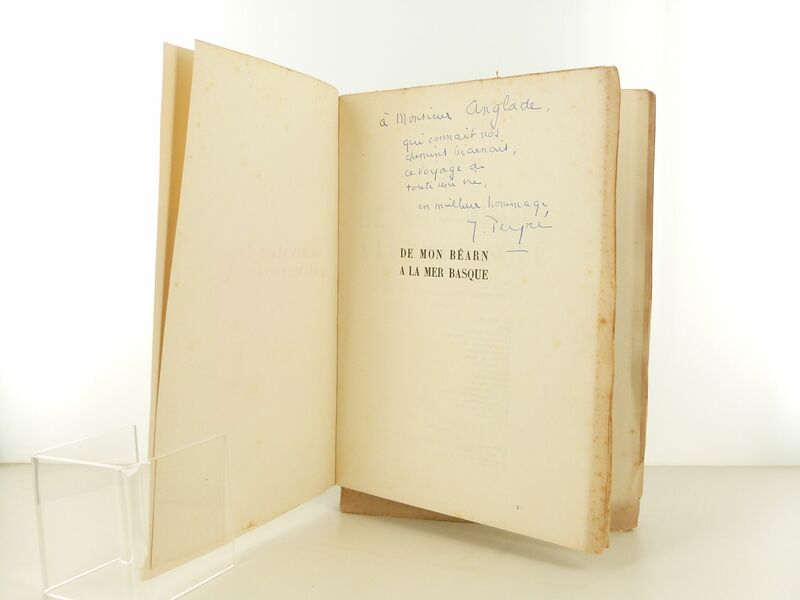 à Monsieur Anglade,
qui connait nos
chemins béarnais,
ce voyage de
toute une vie,
en meilleur hommage
J. Peyré
DE MON BÉARN
A LA MER BASQUE
1.